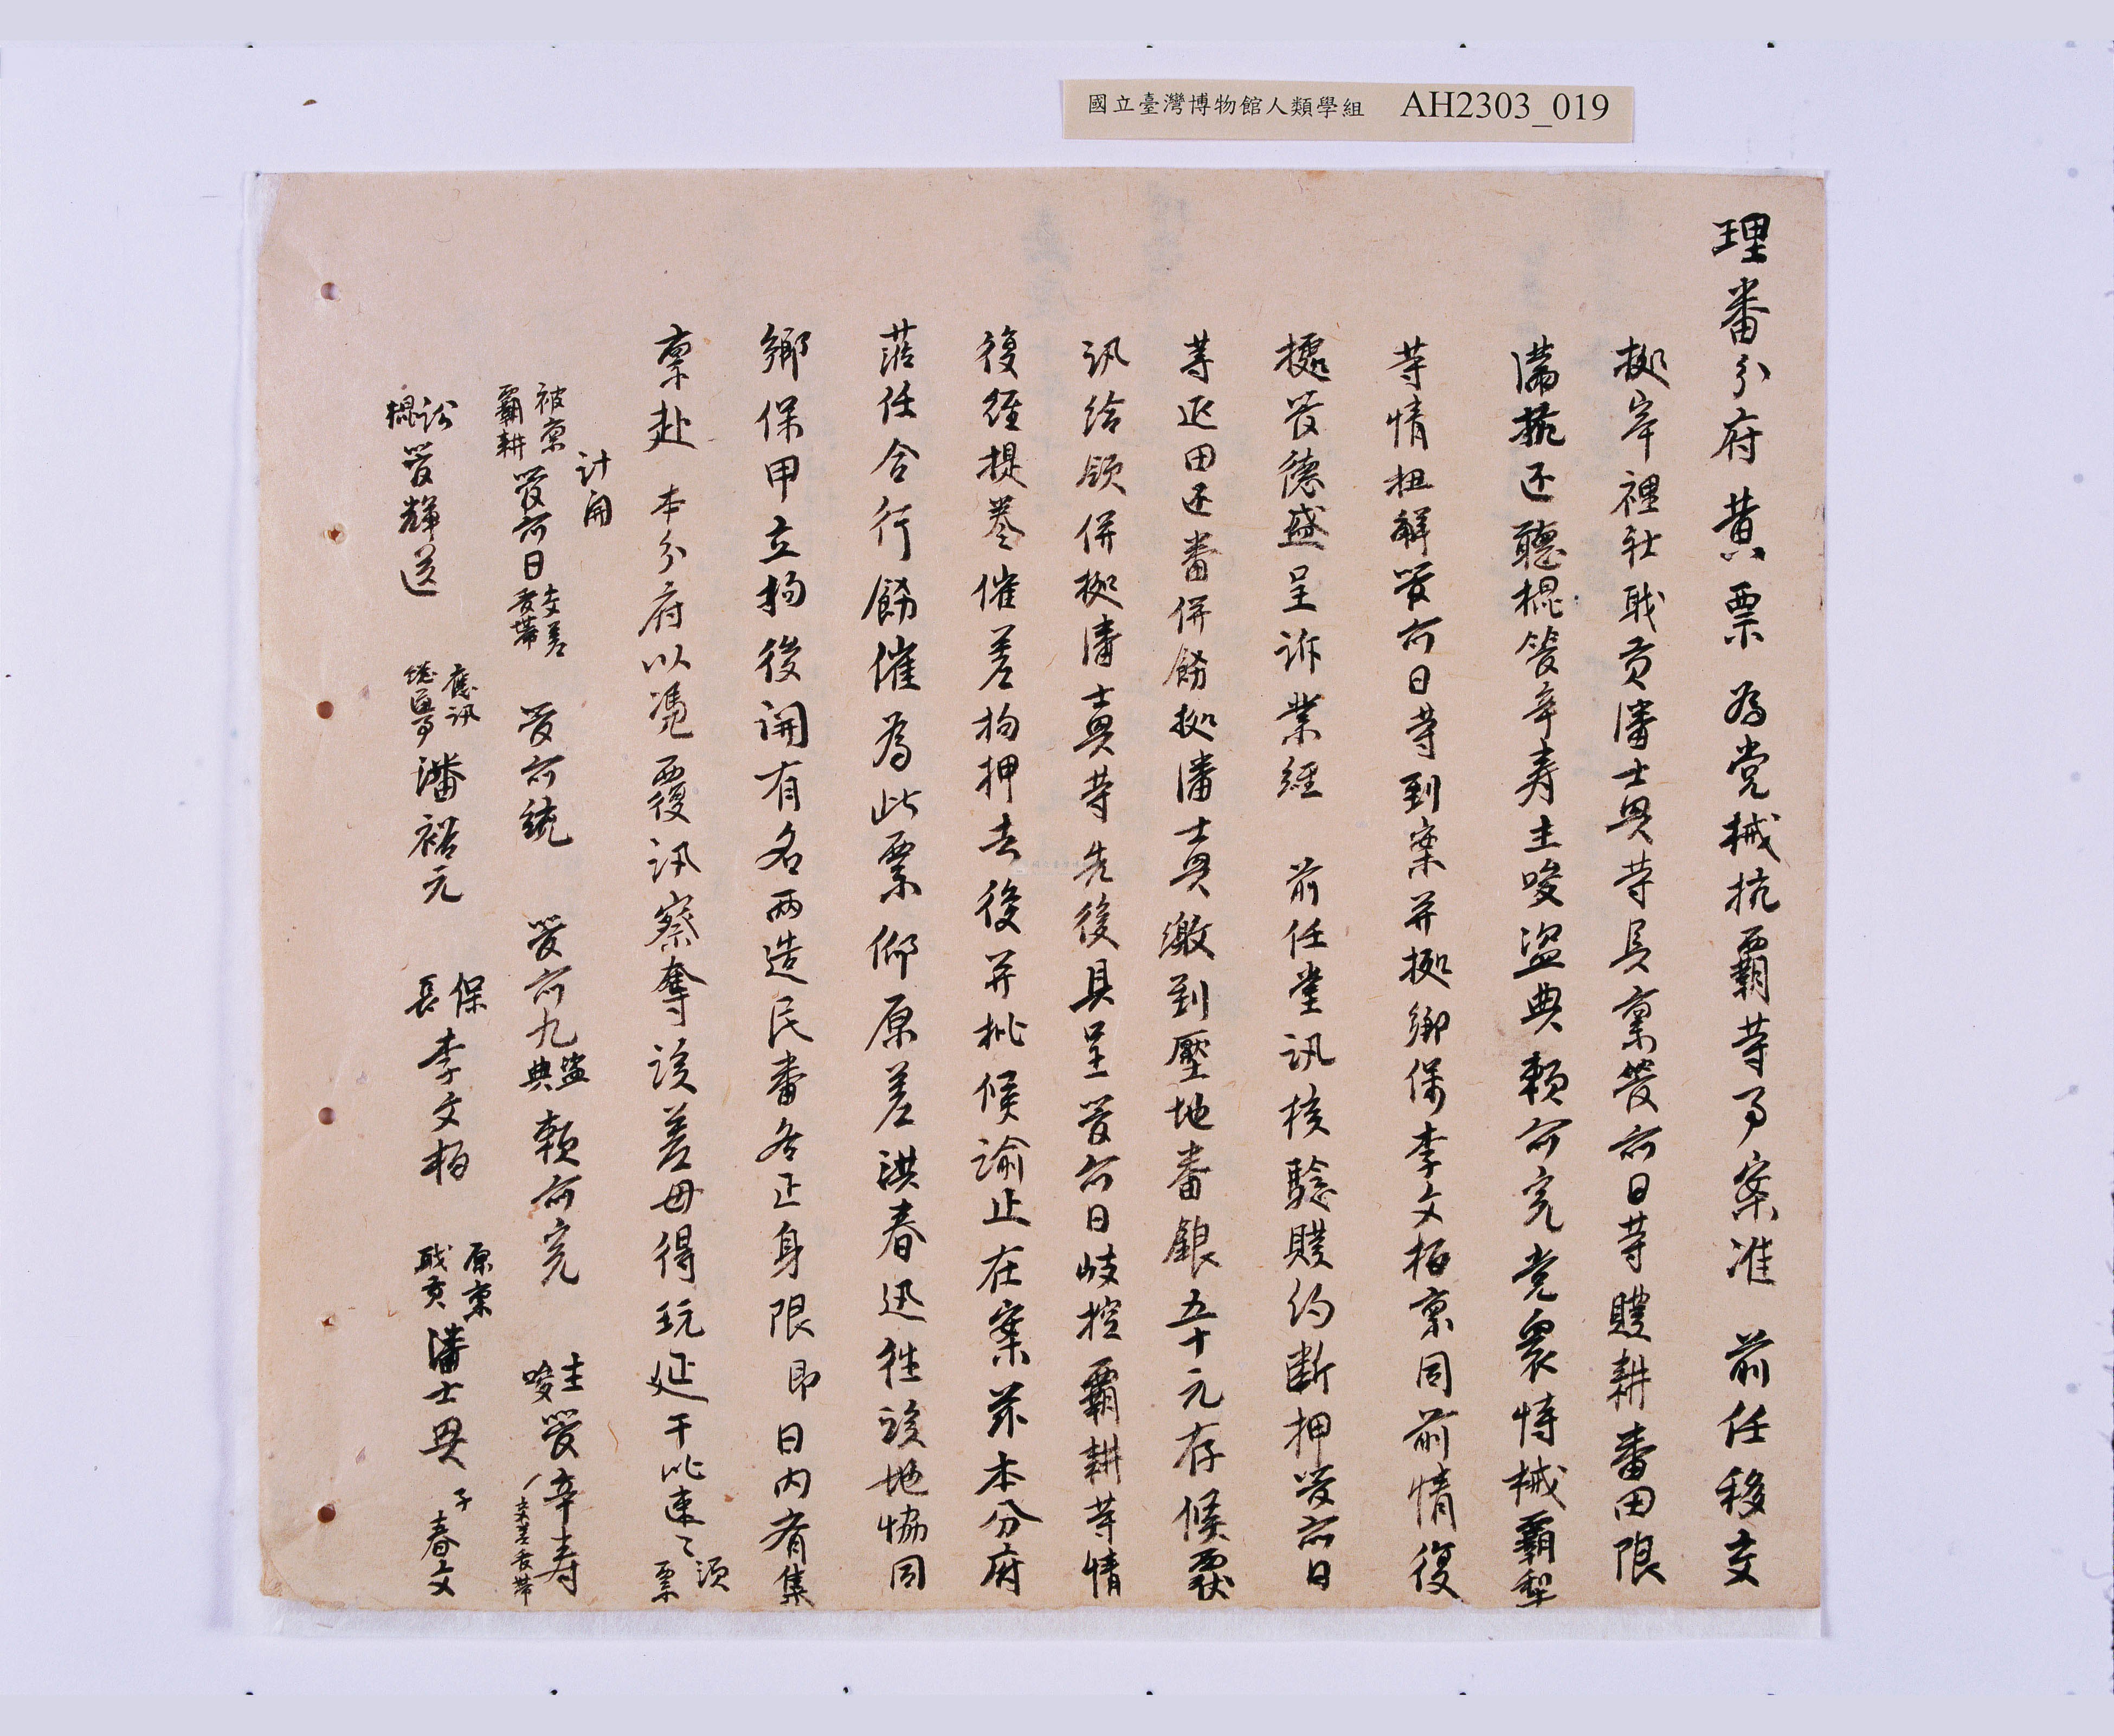 國立臺灣博物館人類學組 AH2303_019
理番分府黃票為党械抗霸等事案准 前任移交
拠岸裡社職貢潘士興等具稟管 日等贌耕番田限
滿抗还聽棍管辛寿主唆盜典賴 完党眾恃械霸犁
等情扭解管 日等到案并拠鄉保李文栢稟同前情復
據管德盛呈訴業經 前任堂訊核驗贌約断押管 日
等退田还番併飭拠潘士興繳到壓地番銀五十元存候覆
訊給領併拠潘士興等先後具呈管 日歧控霸耕等情
復經提卷催差拘押去後并批候諭止在案茲本分府
蒞任合行飭催為此票仰原差洪春迅往該地協同
鄉保甲立拘後開有名兩造民番各正身限即日內齊集
稟赴 本分府以憑覆訊察奪該差毋得玩延干 速々須票
計開
被稟霸耕管 日交差 帶 管 統 管 九盜典賴 完 主唆管辛寿交差 帶
訟棍管輝送 應訊總通事潘裕元 保長李文栢 原稟職貢潘士興子春文